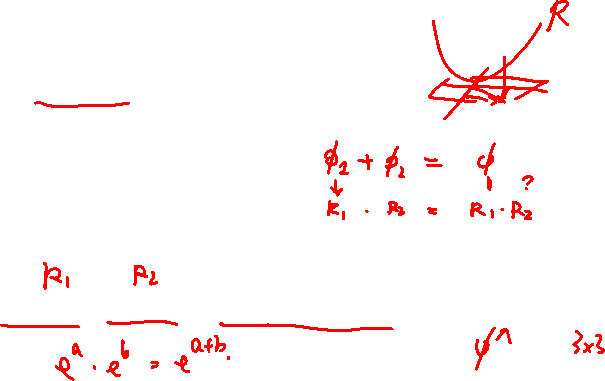 R
ϕ₂ + ϕ₂ = ϕ
↓ ?
R₁ · R₂ = R₁·R₂
R₁ R₂
eᵃ · eᵇ = eᵃ⁺ᵇ.
φ^ 3x3